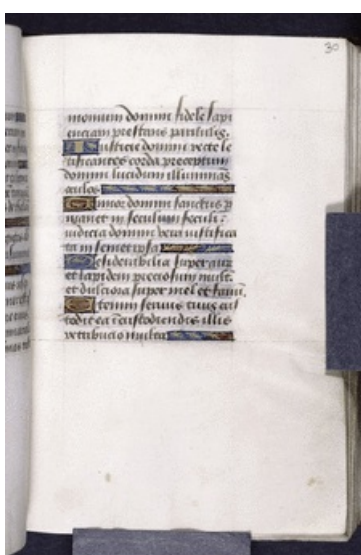 30
monium domini fidele sapi
enciam prestans paruulis.
Iusticie domini recte le
tificantes corda preceptum
domini lucidum illuminās
oculos
Timor domini sanctus p
manet in seculum seculi:
iudicia domini vera iustifica
ta in semet ipsa
Desiderabilia super aur
et lapidem preciosum mult.
et dulciora super mel et fauū.
Etenim seruus tuus cus
todit ea ī custodiendis illis
retribucio multa